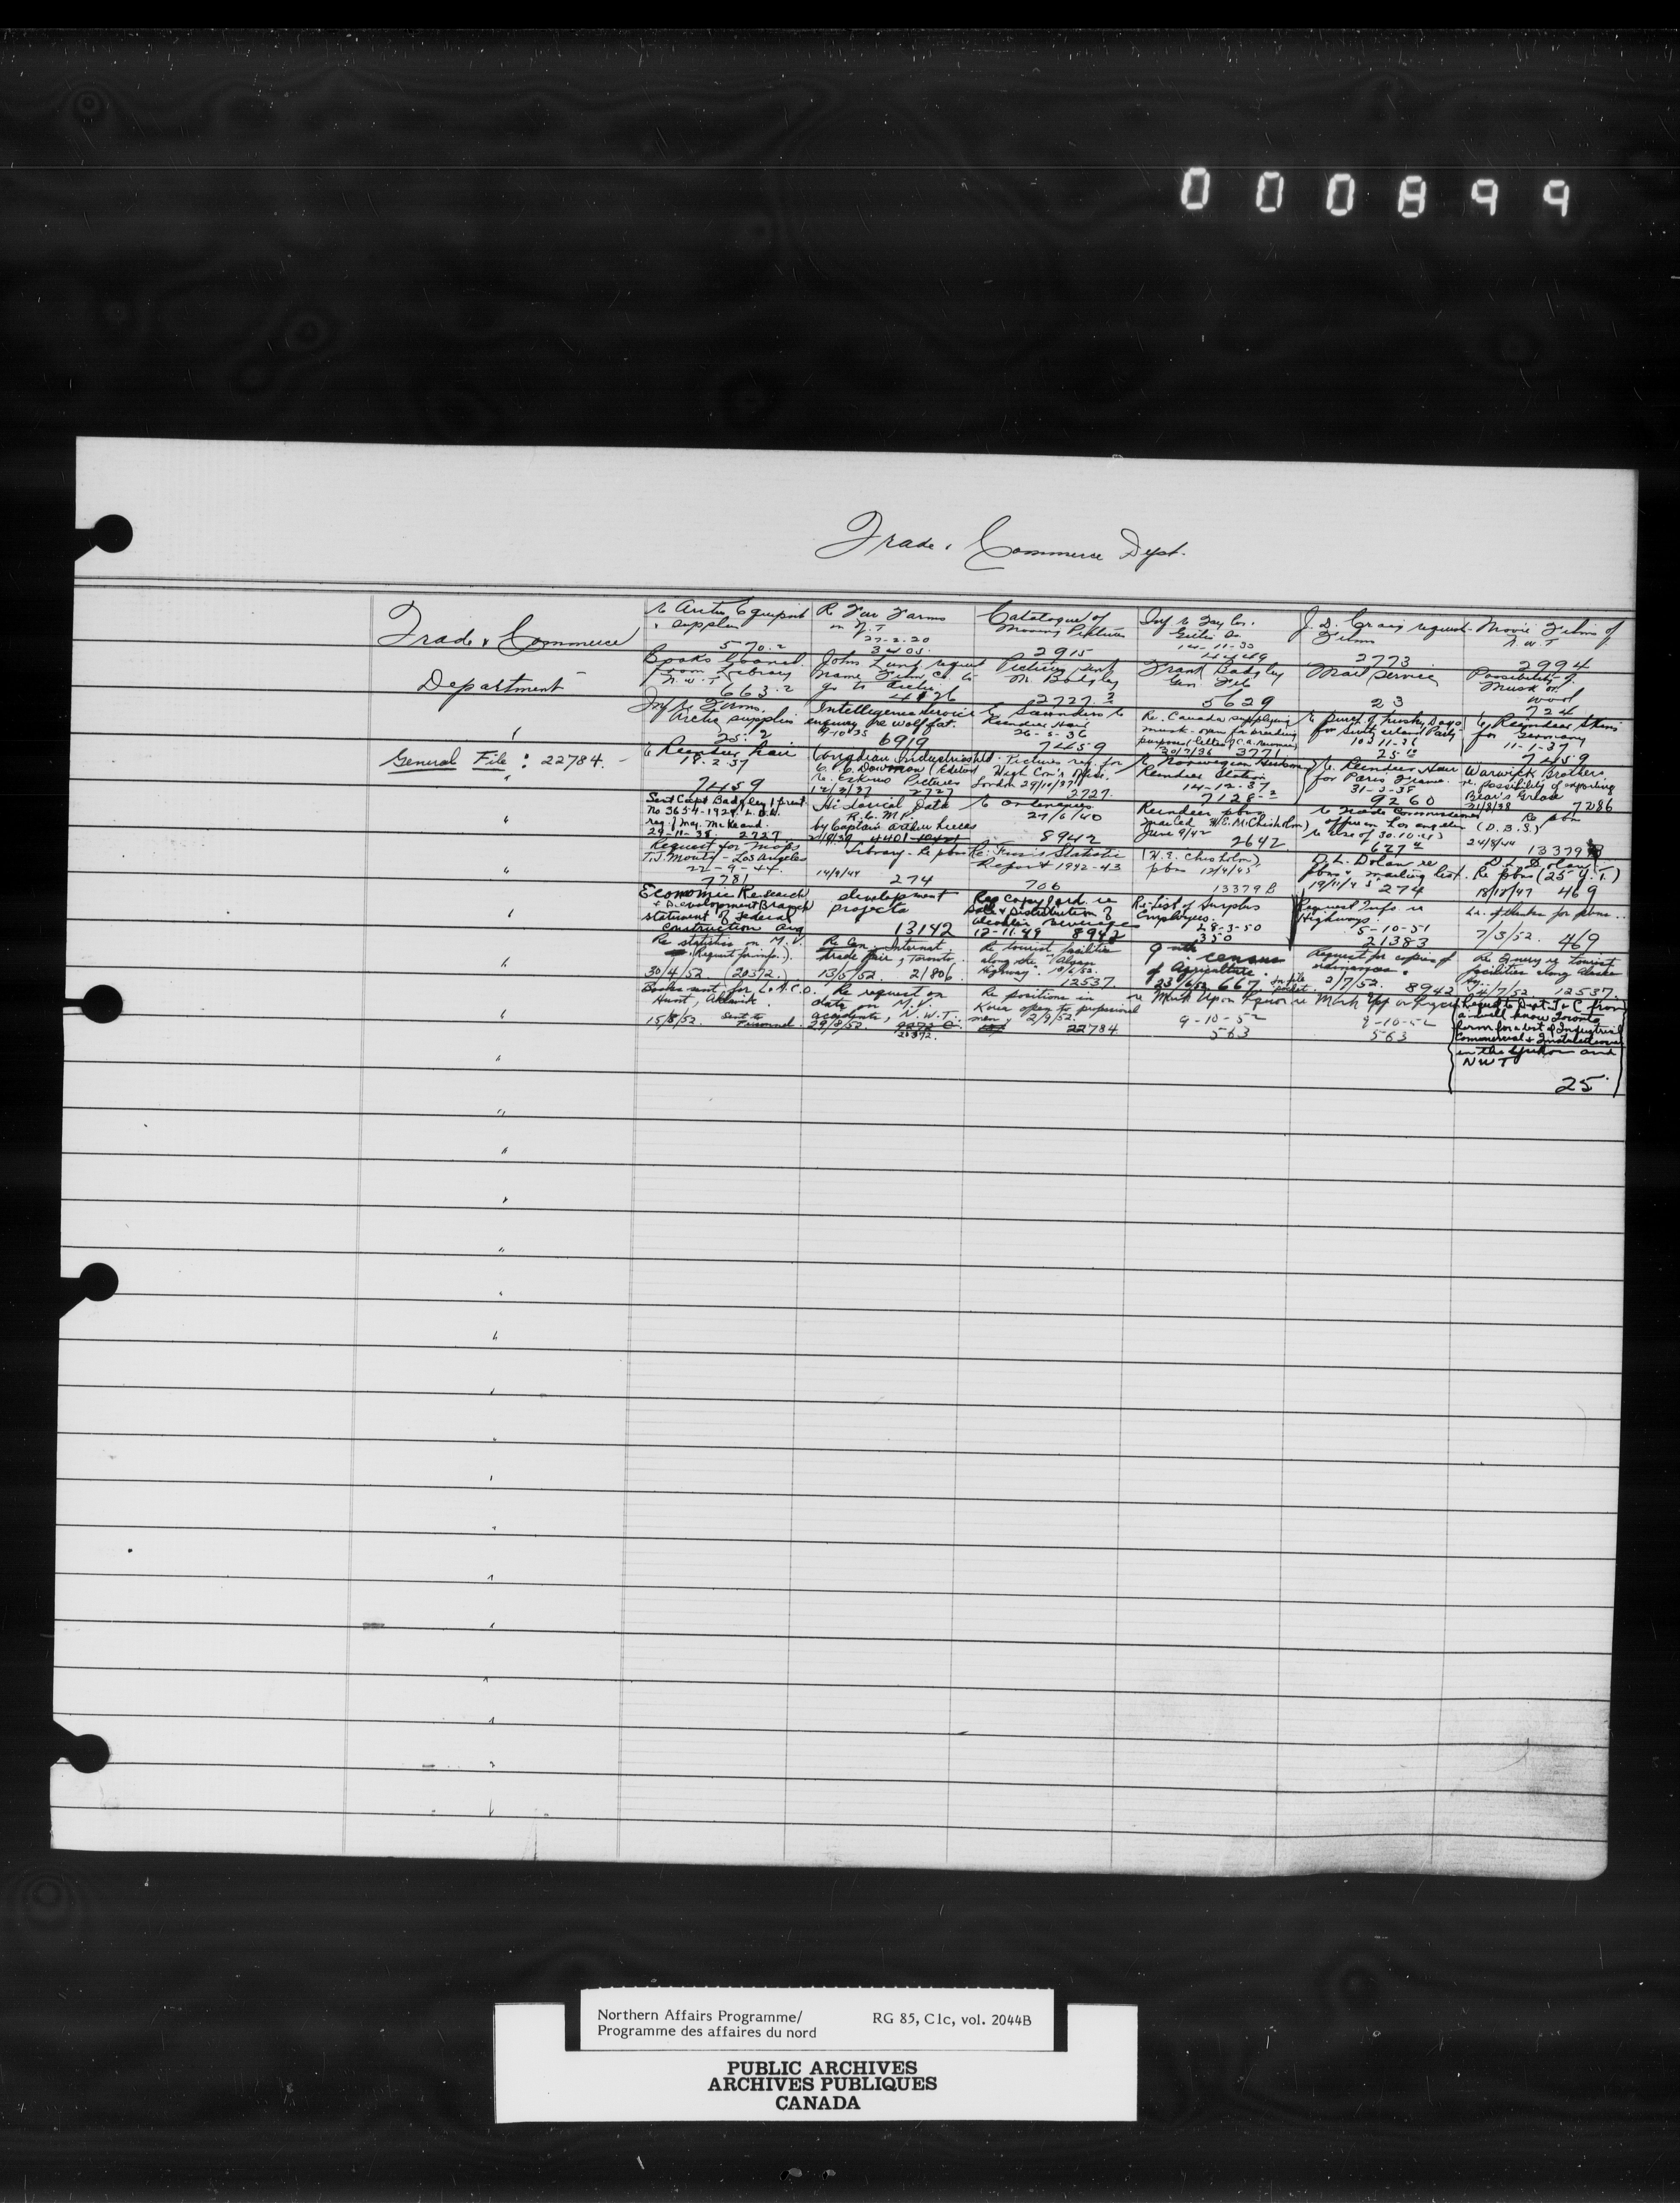 000899
Trade & Commerce Dept.
Trade & Commerce
Department
General File : 22784.
re Arctic Equipment
& supplies
570.2
Re Fur Farms
in N.T
27-2-20
3405.
Catalogue of
Moving Pictures
2915
Inf re Fay Co.
14-11-30
4449
J. D. Craig request
Films
2773
Movie Films of
N.W.T
2994
Books loaned
from Library
N.W.T
663.2
John Lund request
name Film Co to
go to Arctic
4426
Pictures sent
Mr. Badgley
2727.2
Frank Badgley
Gen. File
5629
Mail Service
23
Possibility of
Musk ox
wool
724
Inf re Farms.
Arctic supplies
25.2
Intelligence Service
enquiry re wolf fat.
9-10-35
6919
Reindeer Hair
26-5-36
7459
Re. Canada supplying
musk-oxen for breeding
purposes
20/7/36 3771
re purch of Husky Dogs
for
10-11-36
re Reindeer Skins
for Germany
11-1-37
7459
re Reindeer hair
18.2.37
7459
Canadian Industries Ltd.
(Editor)
re. Eskimo Pictures
12/2/37 2727
Pictures req. for
High Com's Office.
London 29/10/37
2727.
re Norwegian
Reindeer Station
14-12-37
7128-2
re. Reindeer Hair
for Paris France.
31-3-38
9260
Warwick Brothers
re. Possibility of exporting
Bear's Grease
21/8/38 7286
Sent Capt Badgley 1 print
No 3654-1924.
req. of Maj. McKeand.
29-11-38. 2727
Historical Data
R.C.M.P.
by Captain Arthur
4401
27/6/40
8942
Reindeer pbn
mailed W.E. McChisholm
June 9/42
2642
re Trade Commissioner
office in Los angeles
30.10.43
(D.B.S.)
Re pbn
24/8/44 13379
Request for Maps
T.J. Monty - Los Angeles
22-9-44.
7781
Library. Re pbns
14/9/44 274
Re: Statistic
Report 1942-43
706
(W.E. Chisholm)
pbns 12/4/45
13379 B
D. L. Dolan re
pbns & mailing list.
19/11/45 274
D.L. Dolan
Re pbns (25¢ Y.T.)
18/12/47 469
Economic Research
& Development Branch
statement of Federal
Construction and
development
projects
13142
Sale & Distribution of
alcoholic beverages
12-11-49 8942
Re: List of Surplus
Employees.
28-3-50
350
Request Info re
Highways.
5-10-51
21383
Le. of thanks for pbns..
7/3/52. 469
Re statistics on M.V.
(Request for info.).
30/4/52 (20372.)
Re Can. Internat.
Trade Fair, Toronto,
13/5/52. 21806
Re tourist facilities
along the "Alcan
Highway". 10/6/52.
12537.
9nth census
of Agriculture.
23/6/52 667
Request for copies of
ordinances.
2/7/52. 8942
Re Enquiry re tourist
facilities along Alaska
Hy.
14/7/52 12537.
Books sent for L.A.C.O.
Hunt, Aklavik.
15/8/52. sent to
Personnel.
Re request on
data on M.V.
accidents, N.W.T.
29/8/52. 20372.
Re positions in
Korea open to professional
men, 2/9/52.
22784
re Mark Up on Liquor
9-10-52
563
re Mark Up on Liquor
9-10-52
563
Request to Dept. T & C from
a well know Toronto
firm for a list of Industrial
Commercial &
in the Yukon and
NWT
25
Northern Affairs Programme/ RG 85, C1c, vol. 2044B
Programme des affaires du nord
PUBLIC ARCHIVES
ARCHIVES PUBLIQUES
CANADA